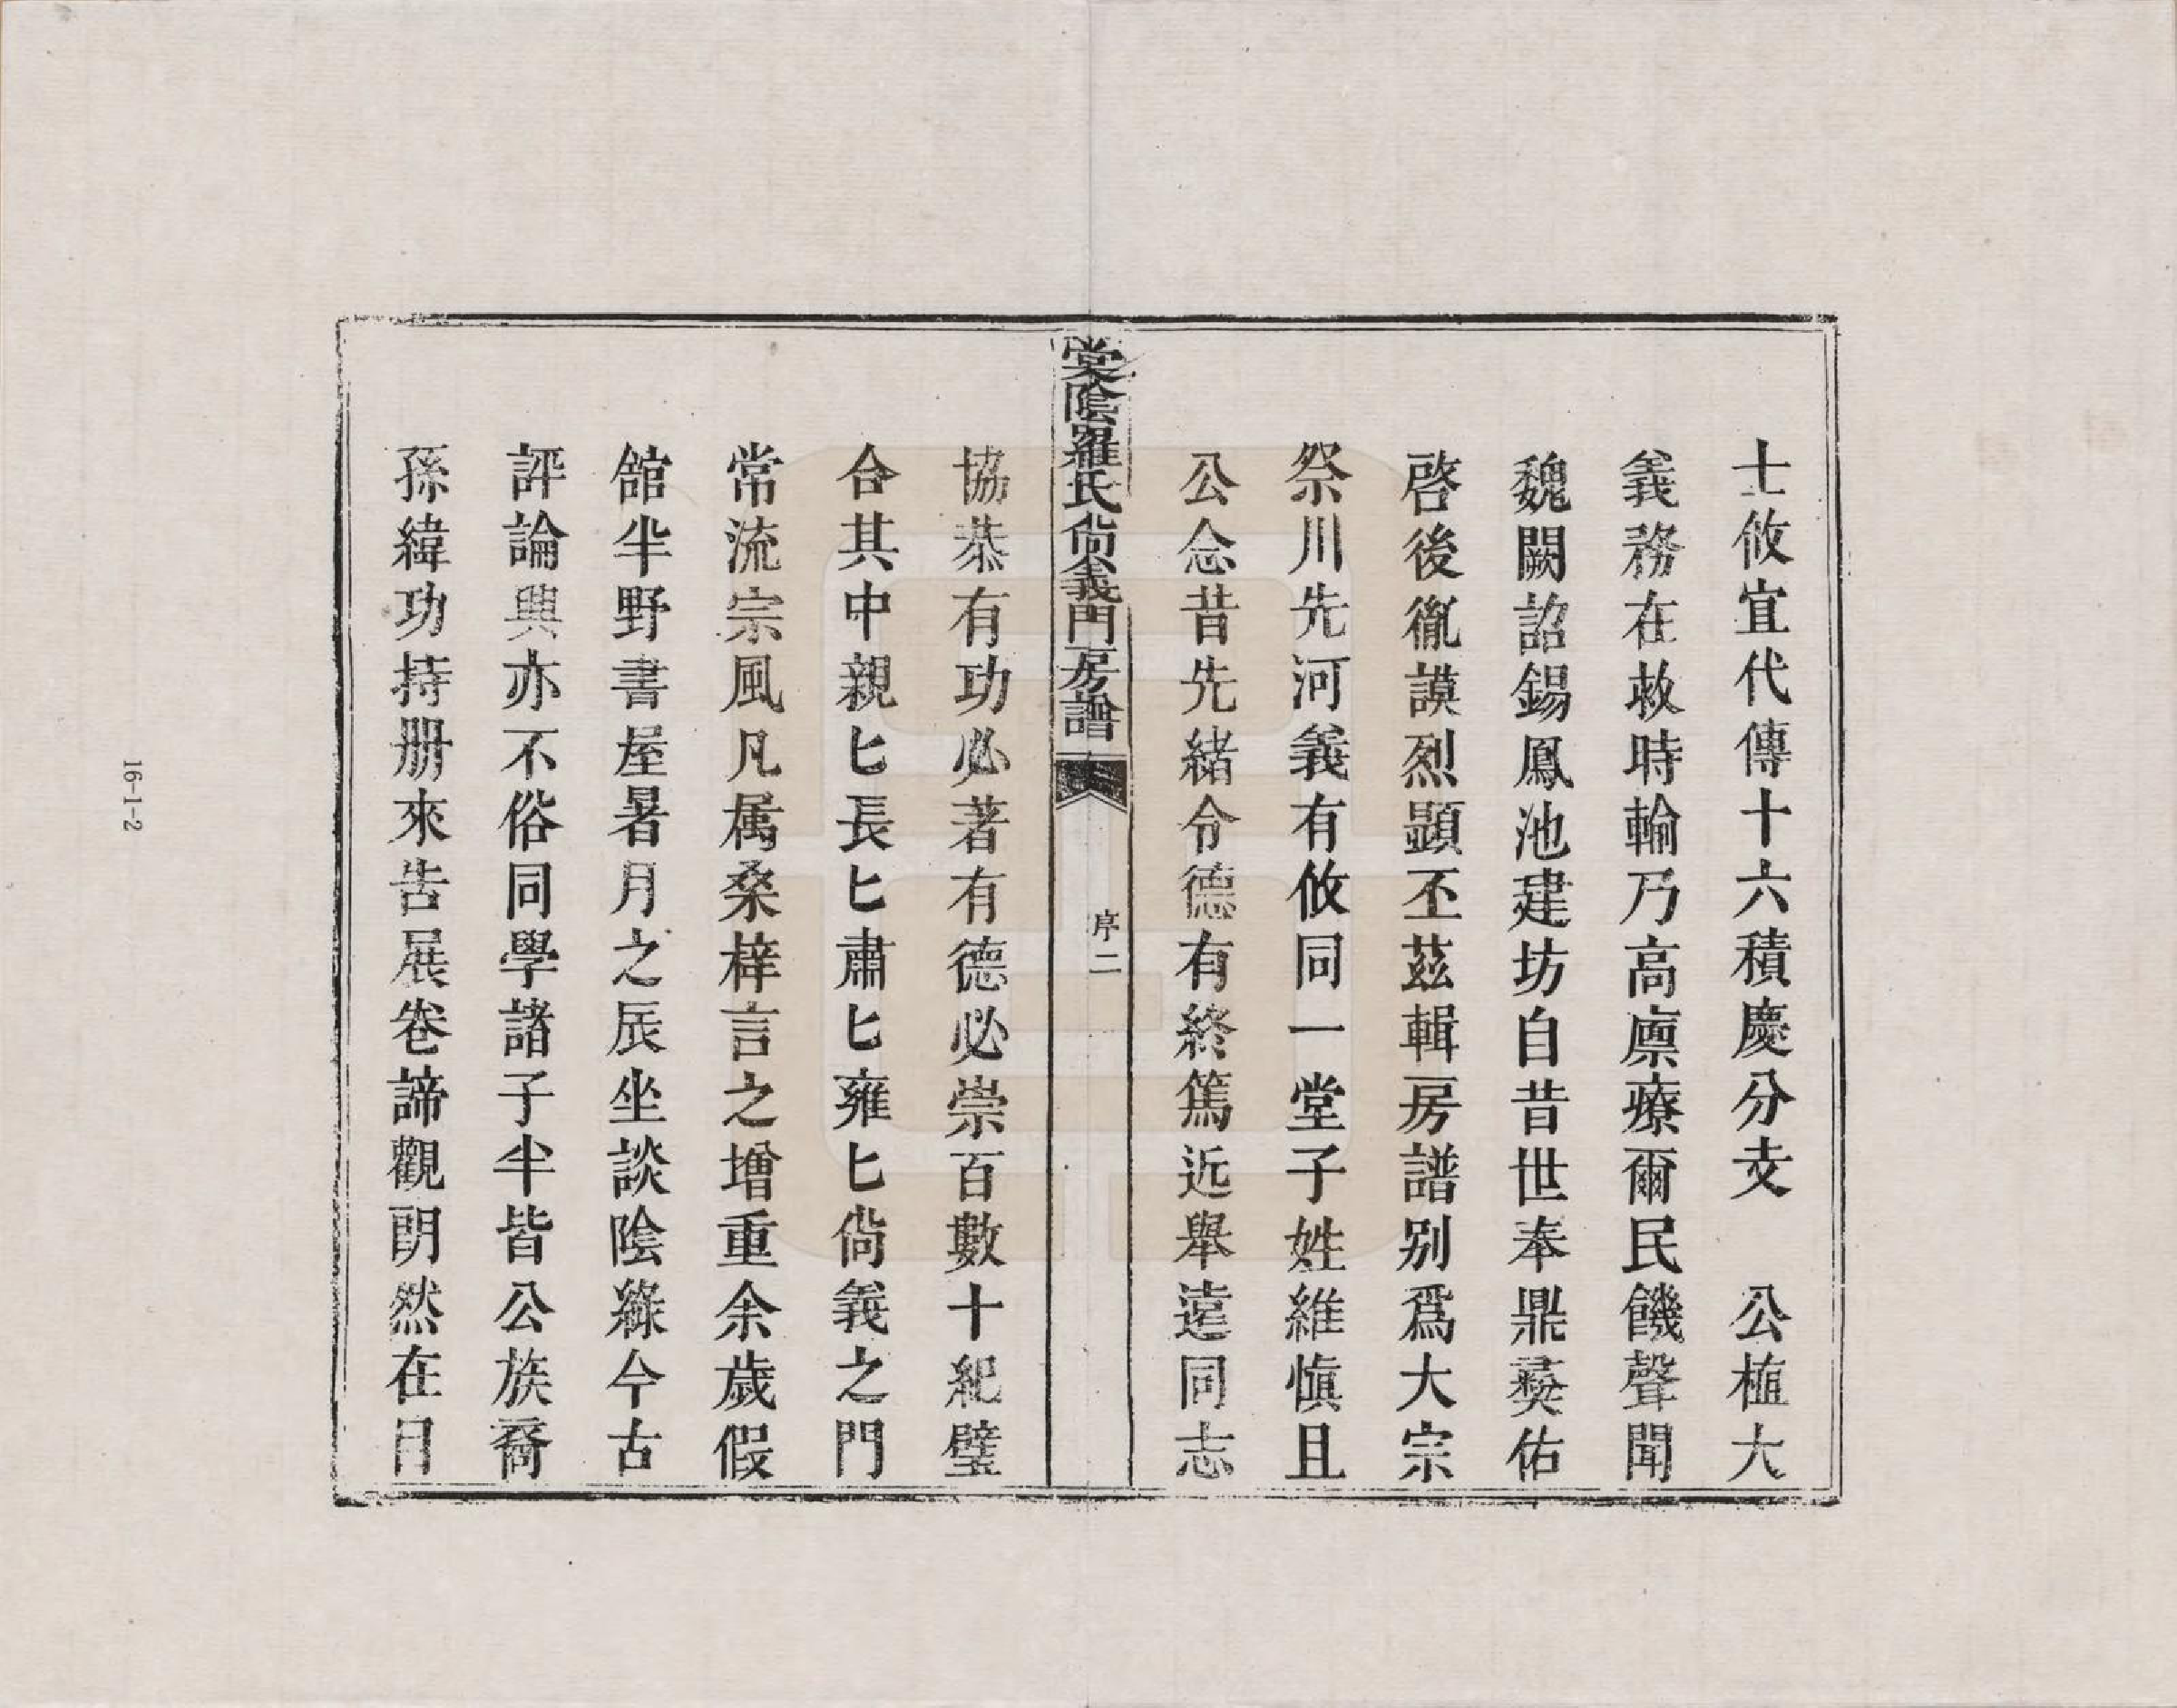 士攸宜代傳十六積慶分支　公植大
義務在救時輸乃高廪療爾民饑聲聞
魏闕詔錫鳳池建坊自昔世奉鼎彜佑
啓後胤謨烈顕丕茲輯房譜别爲大宗
祭川先河義有攸同一堂子姓維慎且
公念昔先緒令德有終篤近舉遠同志
棠陰羅氏尚義門房譜
序二
協恭有功必著有德必崇百數十紀璧
合其中親匕長匕肅匕雍匕尚義之門
常流宗風凡属桑梓言之增重余歲假
舘半野書屋暑月之辰坐談陰綠今古
評論興亦不俗同學諸子半皆公族裔
孫緯功持册來告展卷諦觀朗然在目
16-1-2